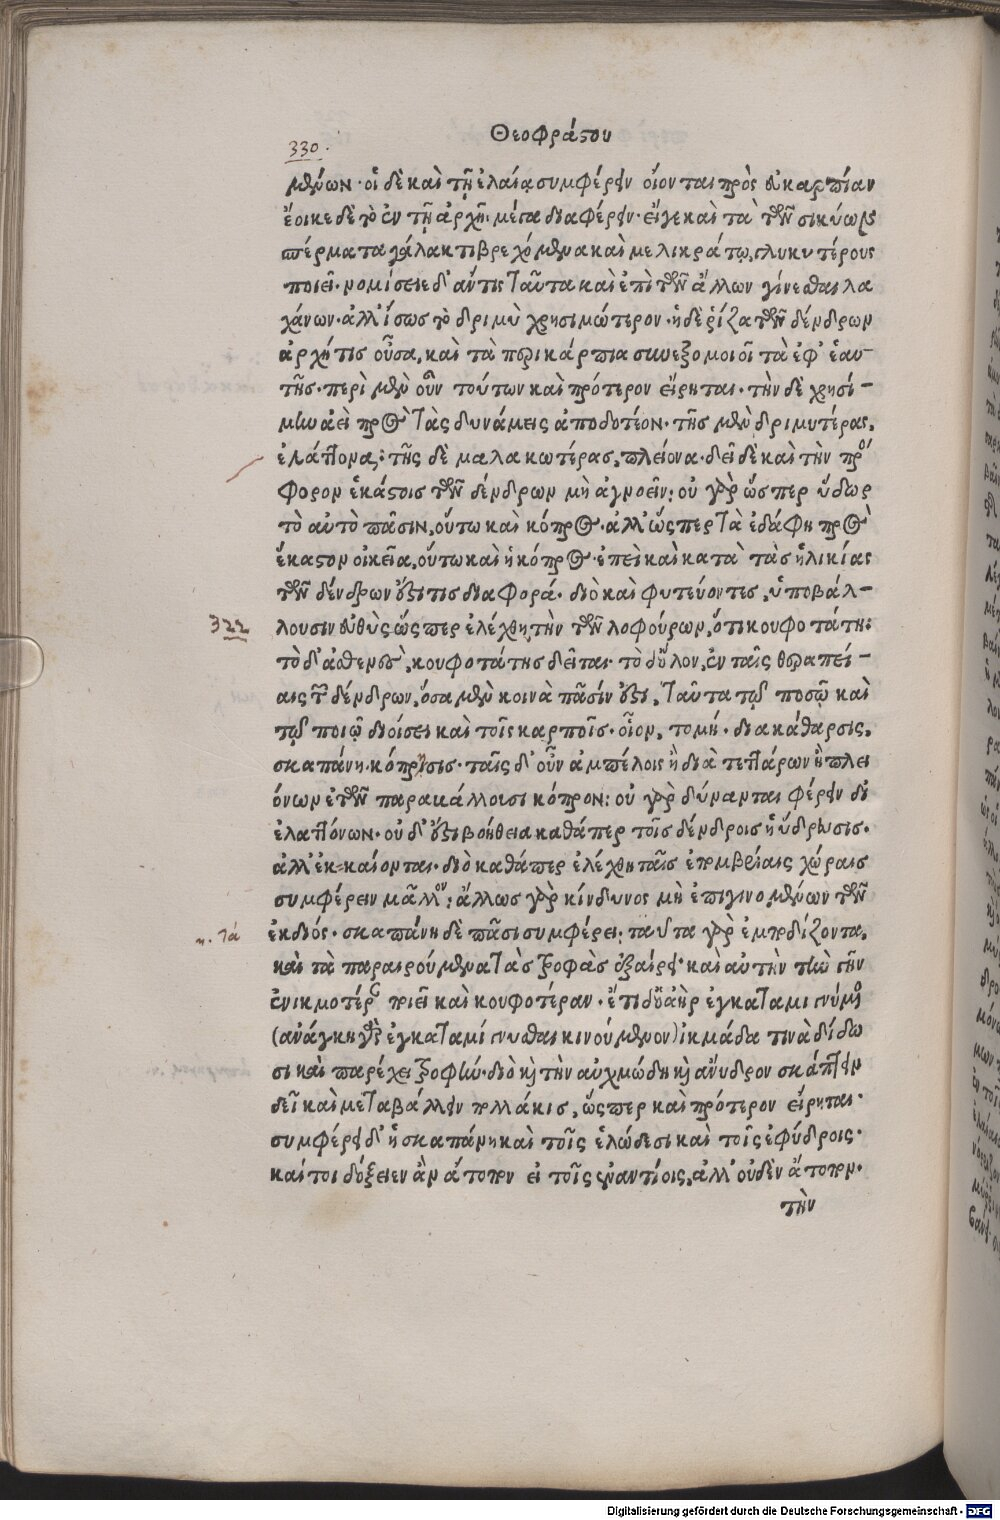 Θεοφράστου
330.
μένων· οἱ δὲ καὶ τῇ ἐλαίᾳ συμφέρειν οἴονται πρὸς εὐκαρπίαν
ἔοικε δὲ τὸ ἐν τῇ ἀρχῇ μέγα διαφέρειν· εἴγε καὶ τὰ τῶν σικύων σ
πέρματα γάλακτι βρεχόμενα καὶ μελικράτῳ, γλυκυτέρους
ποιεῖ· νομίσειε δ' ἄν τις ταῦτα καὶ ἐπὶ τῶν ἄλλων γίνεσθαι λα
χάνων· ἀλλ' ἴσως τὸ δριμὺ χρησιμώτερον· ἡ δὲ ῥίζα τῶν δένδρων
ἀρχή τις οὖσα, καὶ τὰ περικάρπια συνεξομοιοῖ τὰ ἐφ' ἑαυ-
τῆς· περὶ μὲν οὖν τούτων καὶ πρότερον εἴρηται· τὴν δὲ χρησί-
μην ἀεὶ πρὸς τὰς δυνάμεις ἀποδοτέον· τῆς μὲν δριμυτέρας,
ἐλάττονα; τῆς δὲ μαλακωτέρας, πλείονα· δεῖ δὲ καὶ τὴν πρόσ
φορον ἑκάστοις τῶν δένδρων μὴ ἀγνοεῖν; οὐ γὰρ ὥσπερ ὕδωρ
τὸ αὐτὸ πᾶσιν, οὕτω καὶ κόπρος· ἀλλ' ὥσπερ τὰ ἐδάφη πρὸς
ἕκαστον οἰκεῖα, οὕτω καὶ ἡ κόπρος· ἐπεὶ καὶ κατὰ τὰς ἡλικίας
τῶν δένδρων ἔστι τις διαφορά· διὸ καὶ φυτεύοντες, ὑποβάλ-
322
λουσιν εὐθὺς ὥσπερ ἐλέχθη τὴν τῶν λοφούρων, ὅτι κουφοτάτη;
τὸ δ' ἀσθενὲς, κουφοτάτης δεῖται· τὸ ξύλον, ἐν ταῖς θεραπεί-
αις τῶν δένδρων, ὅσα μὲν κοινὰ πᾶσίν ἐστι, ταῦτα τῷ ποσῷ καὶ
τῷ ποιῷ διοίσει καὶ τοῖς καρποῖς· οἷον, τομή· διακάθαρσις,
σκαπάνη· κόπρισις· ταῖς δ' οὖν ἀμπέλοις ἢ διὰ τεττάρων ἢ πλει
όνων ἐτῶν παρακάλλουσι κόπρον: οὐ γὰρ δύνανται φέρειν δι
ἐλαττόνων· οὐδ' ἔστι βοήθεια καθάπερ τοῖς δένδροις ἡ ὕδρευσις·
ἀλλ' ἐκ-καίονται· διὸ καθάπερ ἐλέχθη ταῖς ἐπομβρίαις χώραις
συμφέρειν μᾶλλον; ἄλλως γὰρ κίνδυνος μὴ ἐπιγινομένων τῶν
η. τά
ἐκδιός· σκαπάνη δὲ πᾶσι συμφέρει; ταῦτα γὰρ ἐμποδίζοντα,
καὶ τὰ παραιρούμενα τὰς τροφὰς ἐξαίρει· καὶ αὐτὴν τὴν γῆν
ἐνικμοτέραν ποιεῖ καὶ κουφοτέραν· ἔτι δὲ ὁ ἀὴρ ἐγκαταμιγνύμενος
(ἀνάγκη γὰρ ἐγκαταμίγνυσθαι κινούμενον) ἰκμάδα τινὰ δίδω
σι καὶ παρέχει τροφήν· διὸ καὶ τὴν αὐχμώδη καὶ ἄνυδρον σκάπτειν
δεῖ καὶ μεταβάλλειν πολλάκις, ὥσπερ καὶ πρότερον εἴρηται·
συμφέρει δ' ἡ σκαπάνη καὶ τοῖς ἑλώδεσι καὶ τοῖς ἐφύδροις·
καίτοι δόξειεν ἂν ἄτοπον εἰ τοῖς ἐναντίοις, ἀλλ' οὐδὲν ἄτοπον·
τὴν
Digitalisierung gefördert durch die Deutsche Forschungsgemeinschaft - DFG